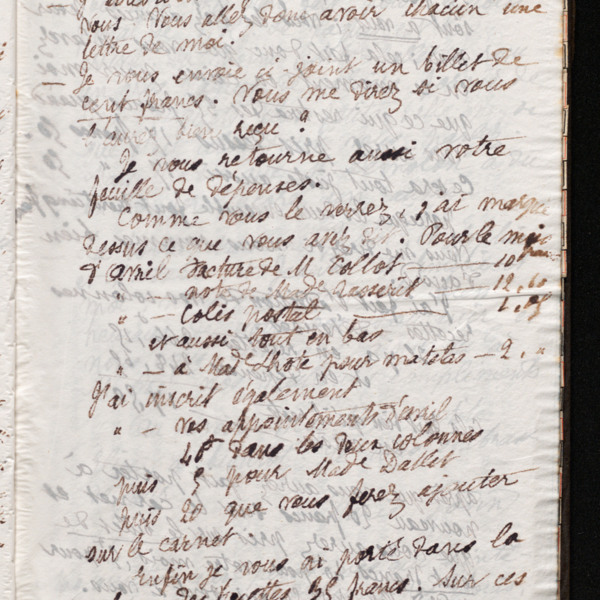 vous. Vous allez donc avoir chacun une
lettre de moi.
Je vous envoie ci joint un billet de
cent francs. Vous me direz si vous
l'aurez bien reçu ?
Je vous retourne aussi votre
feuille de dépenses.
Comme vous le verrez, j'ai marqué
dessus ce que vous avez . Pour le mois
d'avril facture de M Collot — 10
" — note de Mde — 12,60
" — Colis postal — 1.05
et aussi tout en bas
" — à Made Lhôte pour matelas — 2. "
J'ai inscrit également
" — vos appointements d'avril
40f dans les deux colonnes
puis 5 pour Made Dallet
puis 20 que vous ferez ajouter
sur le carnet
Enfin je vous ai porté dans la
des recettes 35 francs. Sur ces